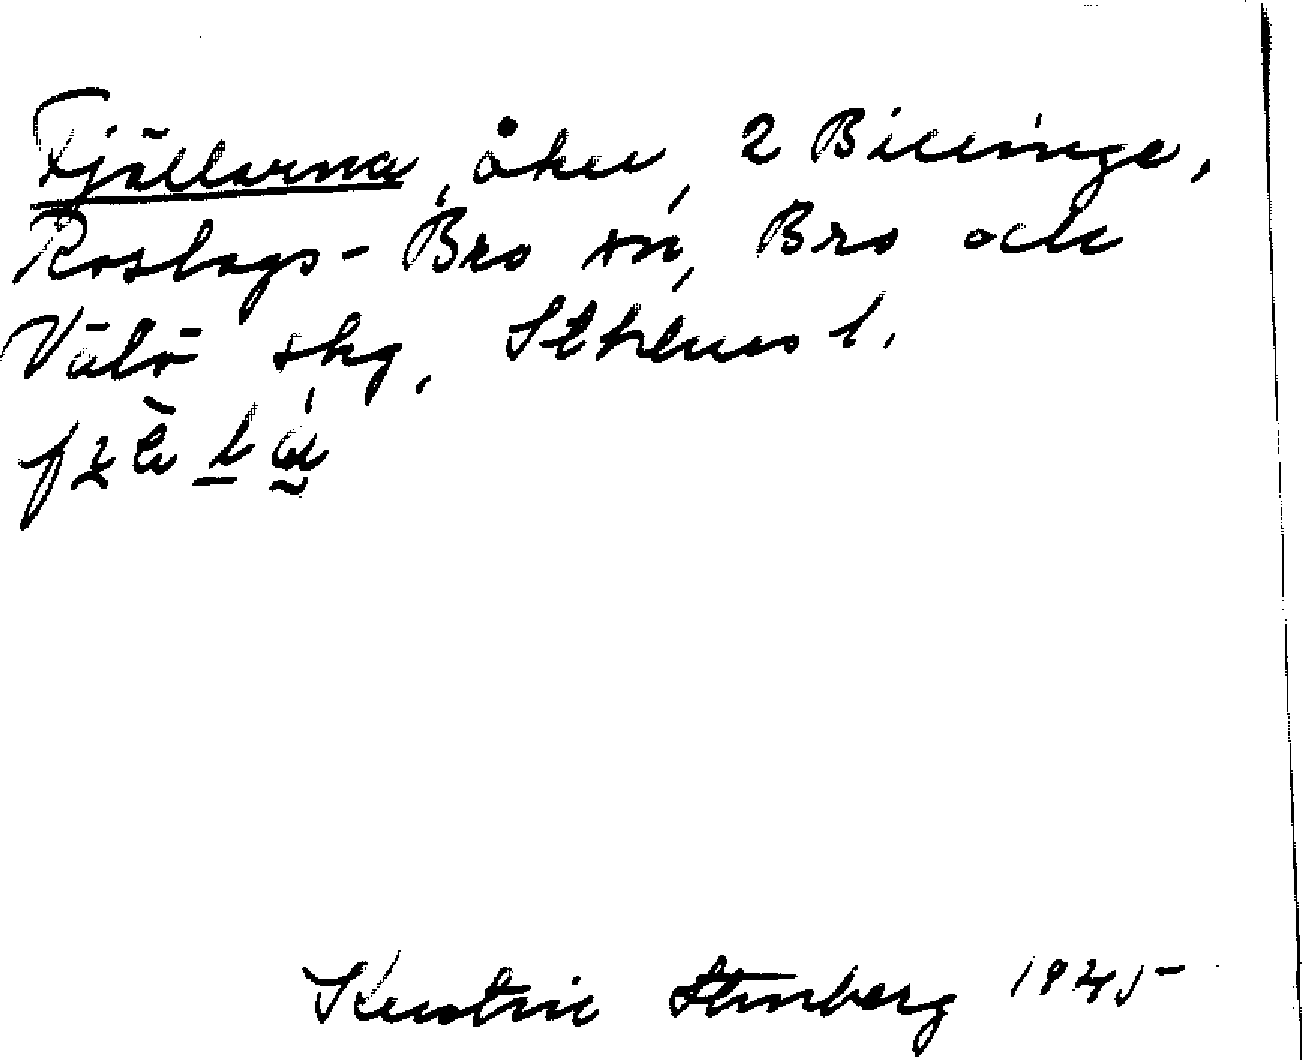 Fjällarna, åker, 2 Billinge,
Roslags-Bro sn, Bro och
Vätö skg, Sthlms l.
Kerstin Stenberg 1945